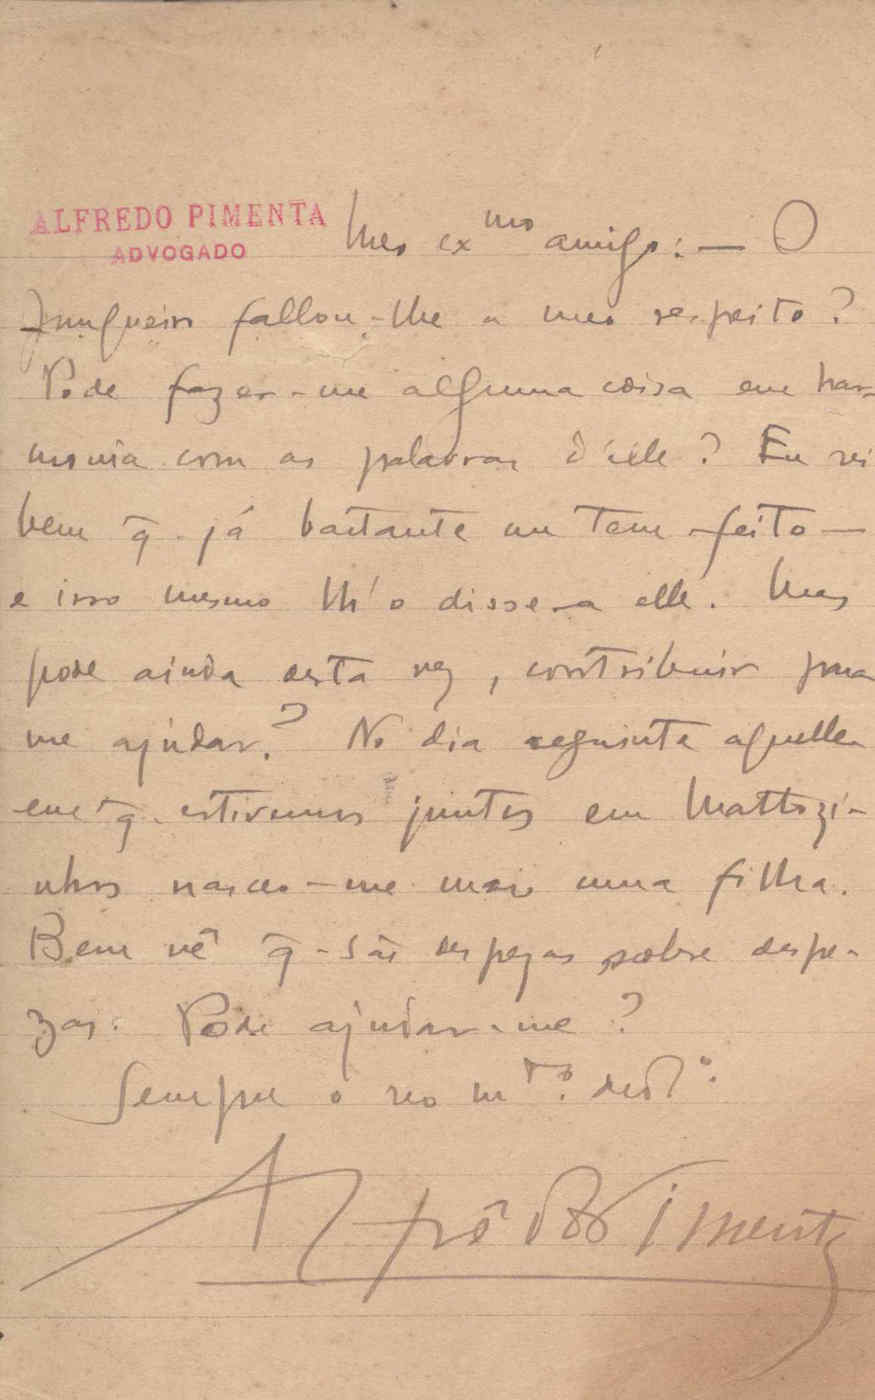 ALFREDO PIMENTA
ADVOGADO
Meo ex^mo amigo: — O
Junqueiro fallou-lhe a meo respeito?
Póde fazer-me alguma coisa em har-
monia com as palavras d'elle? Eu sei
bem q̃ já bastante me tem feito —
e isso mesmo lh'o dissera elle. Mas
póde ainda esta vez, contribuir para
me ajudar? No dia seguinte aquelle
em q̃ estivemos juntos em Mattozi-
nhos nasceo-me mais uma filha.
Bem vê q̃ são despezas sobre despe-
zas. Póde ajudar-me?
Sempre o seo m^to ded^o
Alfrêdo Pimenta